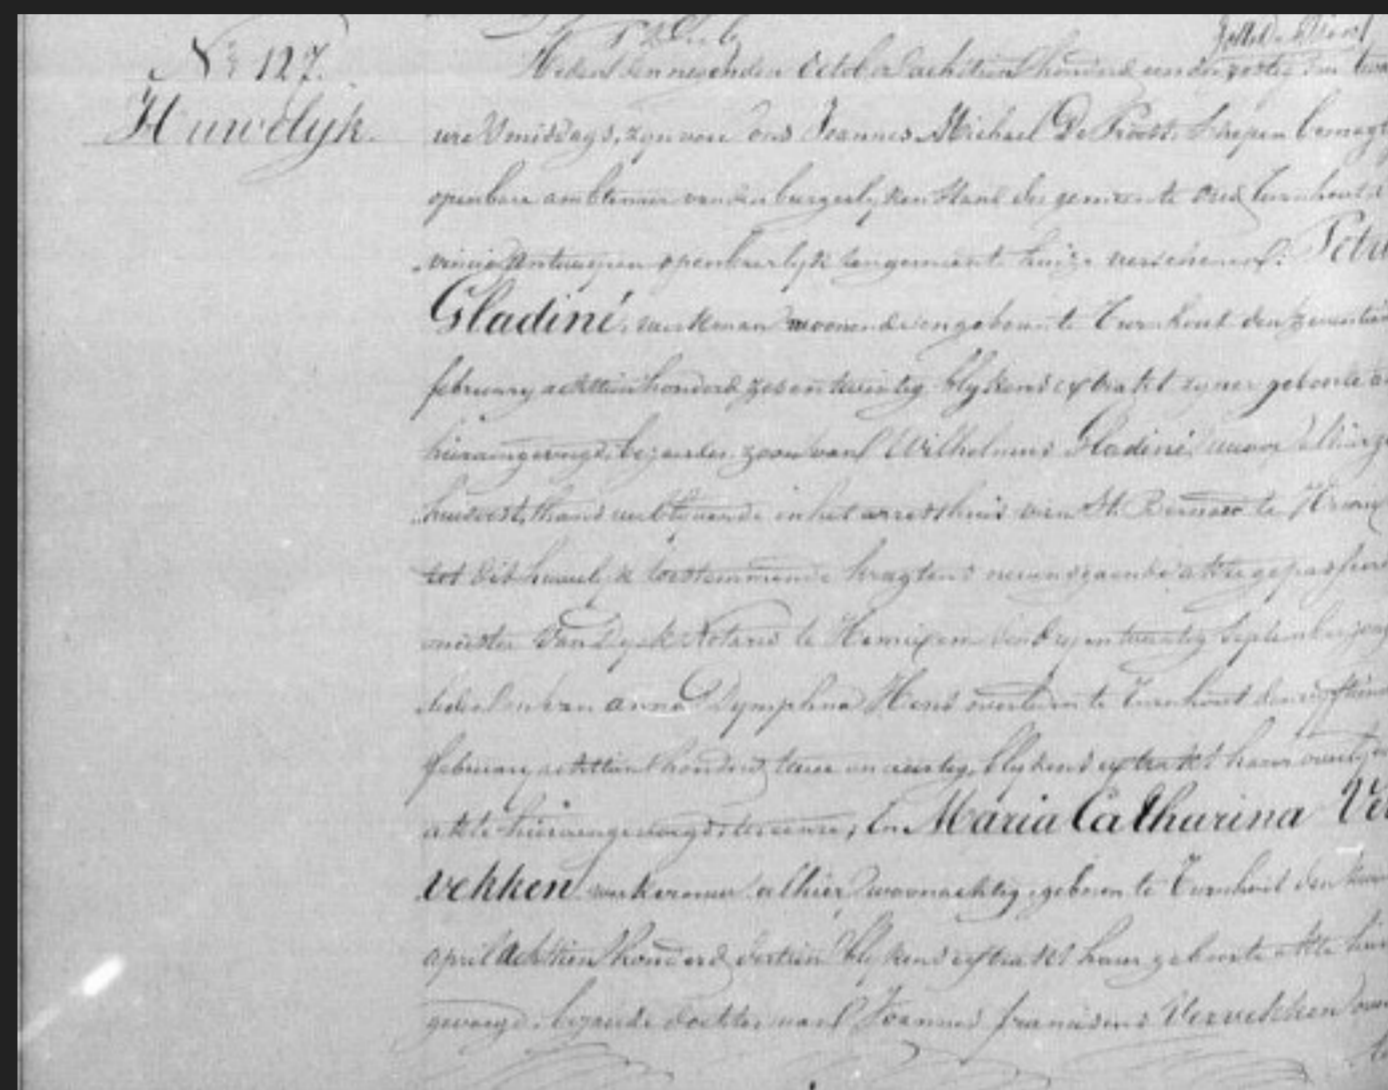 N° 127.
Huwelyk.
Heden den negenden october achttien honderd een en zestig ten
ure 'smiddags, zyn voor ons Joannes Michael De Proost, Schepen
openbare ambtenaar van den burgerlyken Stand der gemeente Oud Turnhout
vincie Antwerpen openbaarlyk ten gemeente huize verschenen:
Gladiné, werkman woonende en geboren te Turnhout den
february achttien honderd zes en twintig blykens extrakt zyner geboorte
hieraangevoegd, bejaarden zoon van Wilhelmus Gladiné,
thans verblyvende in het arresthuis van St. Bernard te
tot dit huwelyk toestemmende kragtens nevensgaende akte gepasseerd
meester Van Dyck Notaris te Hemixem den dry en twintig September
en van Anna Dymphna Hens overleden te Turnhout den
february achttien honderd twee en veertig, blykens extrakt harer
akte hieraangevoegd ter eenre; En Maria Catharina Ver
vekken werkvrouw alhier woonachtig, geboren te Turnhout den
april achttien honderd dertien blykens extrakt harer geboorte akte
gevoegd, bejaarde dochter van Joannes franciscus Vervekken